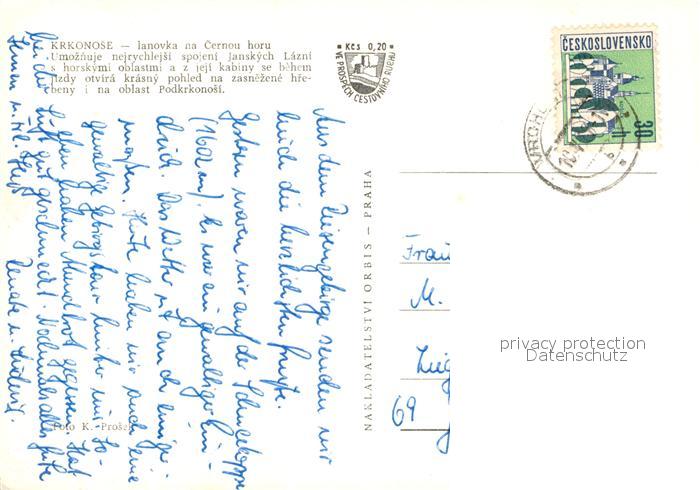 KRKONOŠE — lanovka na Černou horu
Umožňuje nejrychlejší spojení Janských Lázní
s horskými oblastmi a z její kabiny se během
jízdy otvírá krásný pohled na zasněžené hře-
beny i na oblast Podkrkonoší.
Kčs 0,20
VE PROSPĚCH CESTOVNÍHO RUCHU
ČESKOSLOVENSKO
30 h
VRCHL
Aus dem Riesengebirge senden wir
Euch die herzlichsten Grüße.
Gestern waren wir auf der Schneekoppe
(1602 m). Es war ein gewaltiger Ein-
druck. Das Wetter ist auch einiger-
maßen. Heute haben wir auch eine
gewaltige Gebirgstour hinter uns. So-
eben haben Abendbrot gegessen. Hat
gut geschmeckt. Nochmals alles Gute
Renate u.
NAKLADATELSTVÍ ORBIS — PRAHA
Frau
M.
69
Foto K. Prošek
privacy protection
Datenschutz